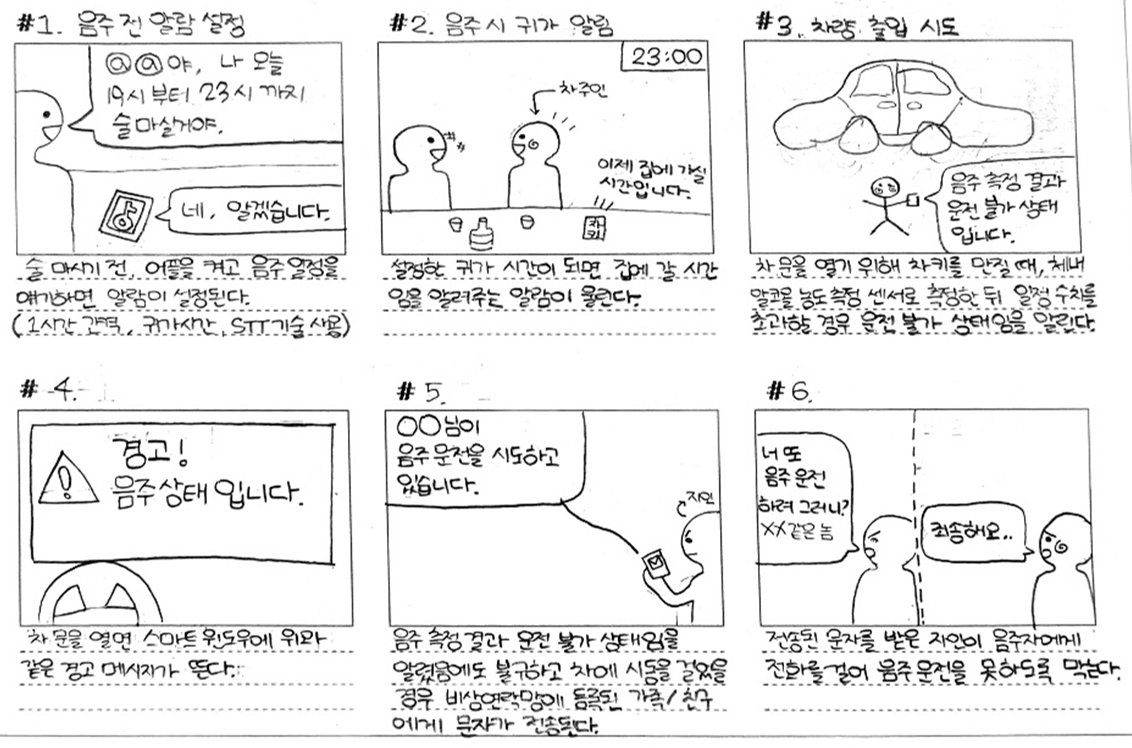 #1. 음주 전 알람 설정
@@야, 나 오늘
19시 부터 23시 까지
술 마실거야.
네, 알겠습니다.
술 마시기 전, 어플을 켜고 음주 일정을
얘기하면 알람이 설정된다.
(1시간 간격, 귀가시간, STT기술 사용)
#2. 음주 시 귀가 알림
23:00
차주인
이제 집에 가실
시간입니다.
차
키
설정한 귀가 시간이 되면 집에 갈 시간
임을 알려주는 알람이 울린다.
#3. 차량 출입 시도
음주 측정 결과
운전 불가 상태
입니다.
차 문을 열기 위해 차키를 만질 때, 체내
알코올 농도 측정 센서로 측정한 뒤 일정 수치를
초과할 경우 운전 불가 상태임을 알린다.
#4.
경고!
음주 상태 입니다.
차 문을 열면 스마트 윈도우에 위와
같은 경고 메시지가 뜬다.
#5.
○○님이
음주 운전을 시도하고
있습니다.
지인
음주 측정 결과 운전 불가 상태임을
알렸음에도 불구하고 차에 시동을 걸었을
경우 비상연락망에 등록된 가족/친구
에게 문자가 전송된다.
#6.
너 또
음주 운전
하려 그러니?
XX같은 놈
죄송해요..
전송된 문자를 받은 지인이 음주자에게
전화를 걸어 음주 운전을 못하도록 막는다.